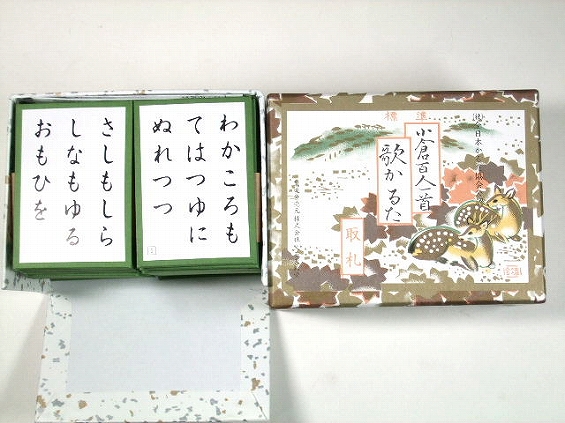 わかころも
てはつゆに
ぬれつつ
さしもしら
しなもゆる
おもひを
標準
小倉百人一首
歌かるた
取札